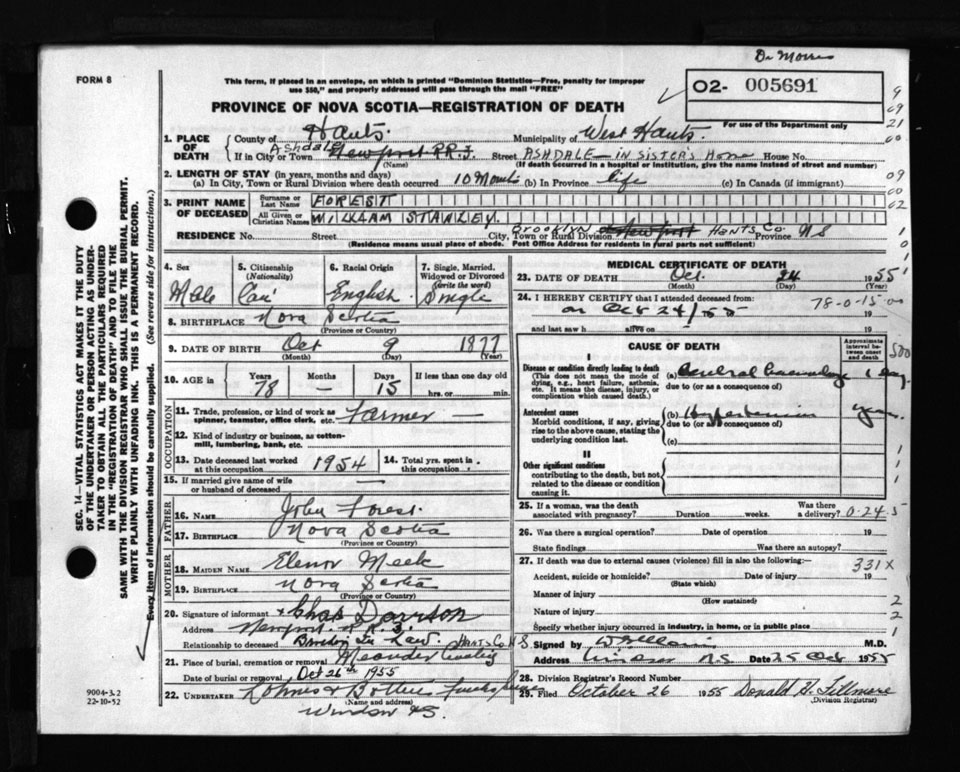 Dr Morris
FORM 8
This form, if placed in an envelope, on which is printed "Dominion Statistics—Free, penalty for improper
use $50," and properly addressed will pass through the mail "FREE"
O2- 005691
PROVINCE OF NOVA SCOTIA—REGISTRATION OF DEATH
For use of the Department only
1. PLACE OF DEATH
County of Hants. Municipality of West Hants.
If in City or Town Ashdale Newport RR. Street ASHDALE—IN SISTER'S Home House No.
(Name) (If death occurred in a hospital or institution, give the name instead of street and number)
2. LENGTH OF STAY (in years, months and days)
(a) In City, Town or Rural Division where death occurred 10 Months (b) In Province life (c) In Canada (if immigrant)
3. PRINT NAME OF DECEASED
Surname or Last Name FOREST
All Given or Christian Names WILLIAM STANLEY.
RESIDENCE No. Street City, Town or Rural Division Brooklyn Newport HANTS Co Province NS
(Residence means usual place of abode. Post Office Address for residents in rural parts not sufficient)
4. Sex
Male
5. Citizenship (Nationality)
Can
6. Racial Origin
English
7. Single, Married, Widowed or Divorced (write the word)
Single
8. BIRTHPLACE Nova Scotia
(Province or Country)
9. DATE OF BIRTH Oct 9 1877
(Month) (Day) (Year)
10. AGE in Years Months Days If less than one day old
78 — 15 hrs. or min.
OCCUPATION
11. Trade, profession, or kind of work as spinner, teamster, office clerk, etc. Farmer —
12. Kind of industry or business, as cotton-mill, lumbering, bank, etc.
13. Date deceased last worked at this occupation 1954
14. Total yrs. spent in this occupation
15. If married give name of wife or husband of deceased —
FATHER
16. NAME John Forest
17. BIRTHPLACE Nova Scotia
(Province or Country)
MOTHER
18. MAIDEN NAME Elenor Meek
19. BIRTHPLACE Nova Scotia
(Province or Country)
20. Signature of informant x Chas Davison
Address Newport R.R. 3.
Relationship to deceased Brother In Law. HANTS Co N S.
21. Place of burial, cremation or removal Meander
Date of burial or removal Oct 26th 1955
22. UNDERTAKER
(Name and address)
Windsor NS.
MEDICAL CERTIFICATE OF DEATH
23. DATE OF DEATH Oct. 24 1955
(Month) (Day) (Year)
24. I HEREBY CERTIFY that I attended deceased from:
78-0-15-00
on Oct 24/55 19
and last saw h alive on 19
CAUSE OF DEATH
Approximate interval between onset and death
I
Disease or condition directly leading to death
(This does not mean the mode of dying, e.g., heart failure, asthenia, etc. It means the disease, injury, or complication which caused death.)
(a) Cerebral 1 day.
due to (or as a consequence of)
Antecedent causes
Morbid conditions, if any, giving rise to the above cause, stating the underlying condition last.
(b) Hypertension years.
due to (or as a consequence of)
(c)
II
Other significant conditions
contributing to the death, but not related to the disease or condition causing it.
25. If a woman, was the death associated with pregnancy? Duration weeks. Was there a delivery? 0-24-5
26. Was there a surgical operation? Date of operation 19
State findings Was there an autopsy?
27. If death was due to external causes (violence) fill in also the following:—
331X
Accident, suicide or homicide? Date of injury 19
(State which)
Manner of injury
(How sustained)
Nature of injury
Specify whether injury occurred in industry, in home, or in public place
Signed by M.D.
Address Windsor N.S. Date 25 Oct 1955
28. Division Registrar's Record Number
29. Filed October 26 1955 Donald H. Fillmore
(Division Registrar)
SEC. 14—VITAL STATISTICS ACT MAKES IT THE DUTY
OF THE UNDERTAKER OR PERSON ACTING AS UNDER-
TAKER TO OBTAIN ALL THE PARTICULARS REQUIRED
IN THE "REGISTRATION OF DEATH" AND TO FILE THE
SAME WITH THE DIVISION REGISTRAR WHO SHALL ISSUE THE BURIAL PERMIT.
WRITE PLAINLY WITH UNFADING INK. THIS IS A PERMANENT RECORD.
Every item of information should be carefully supplied. (See reverse side for instructions.)
9004-3.2
22-10-52